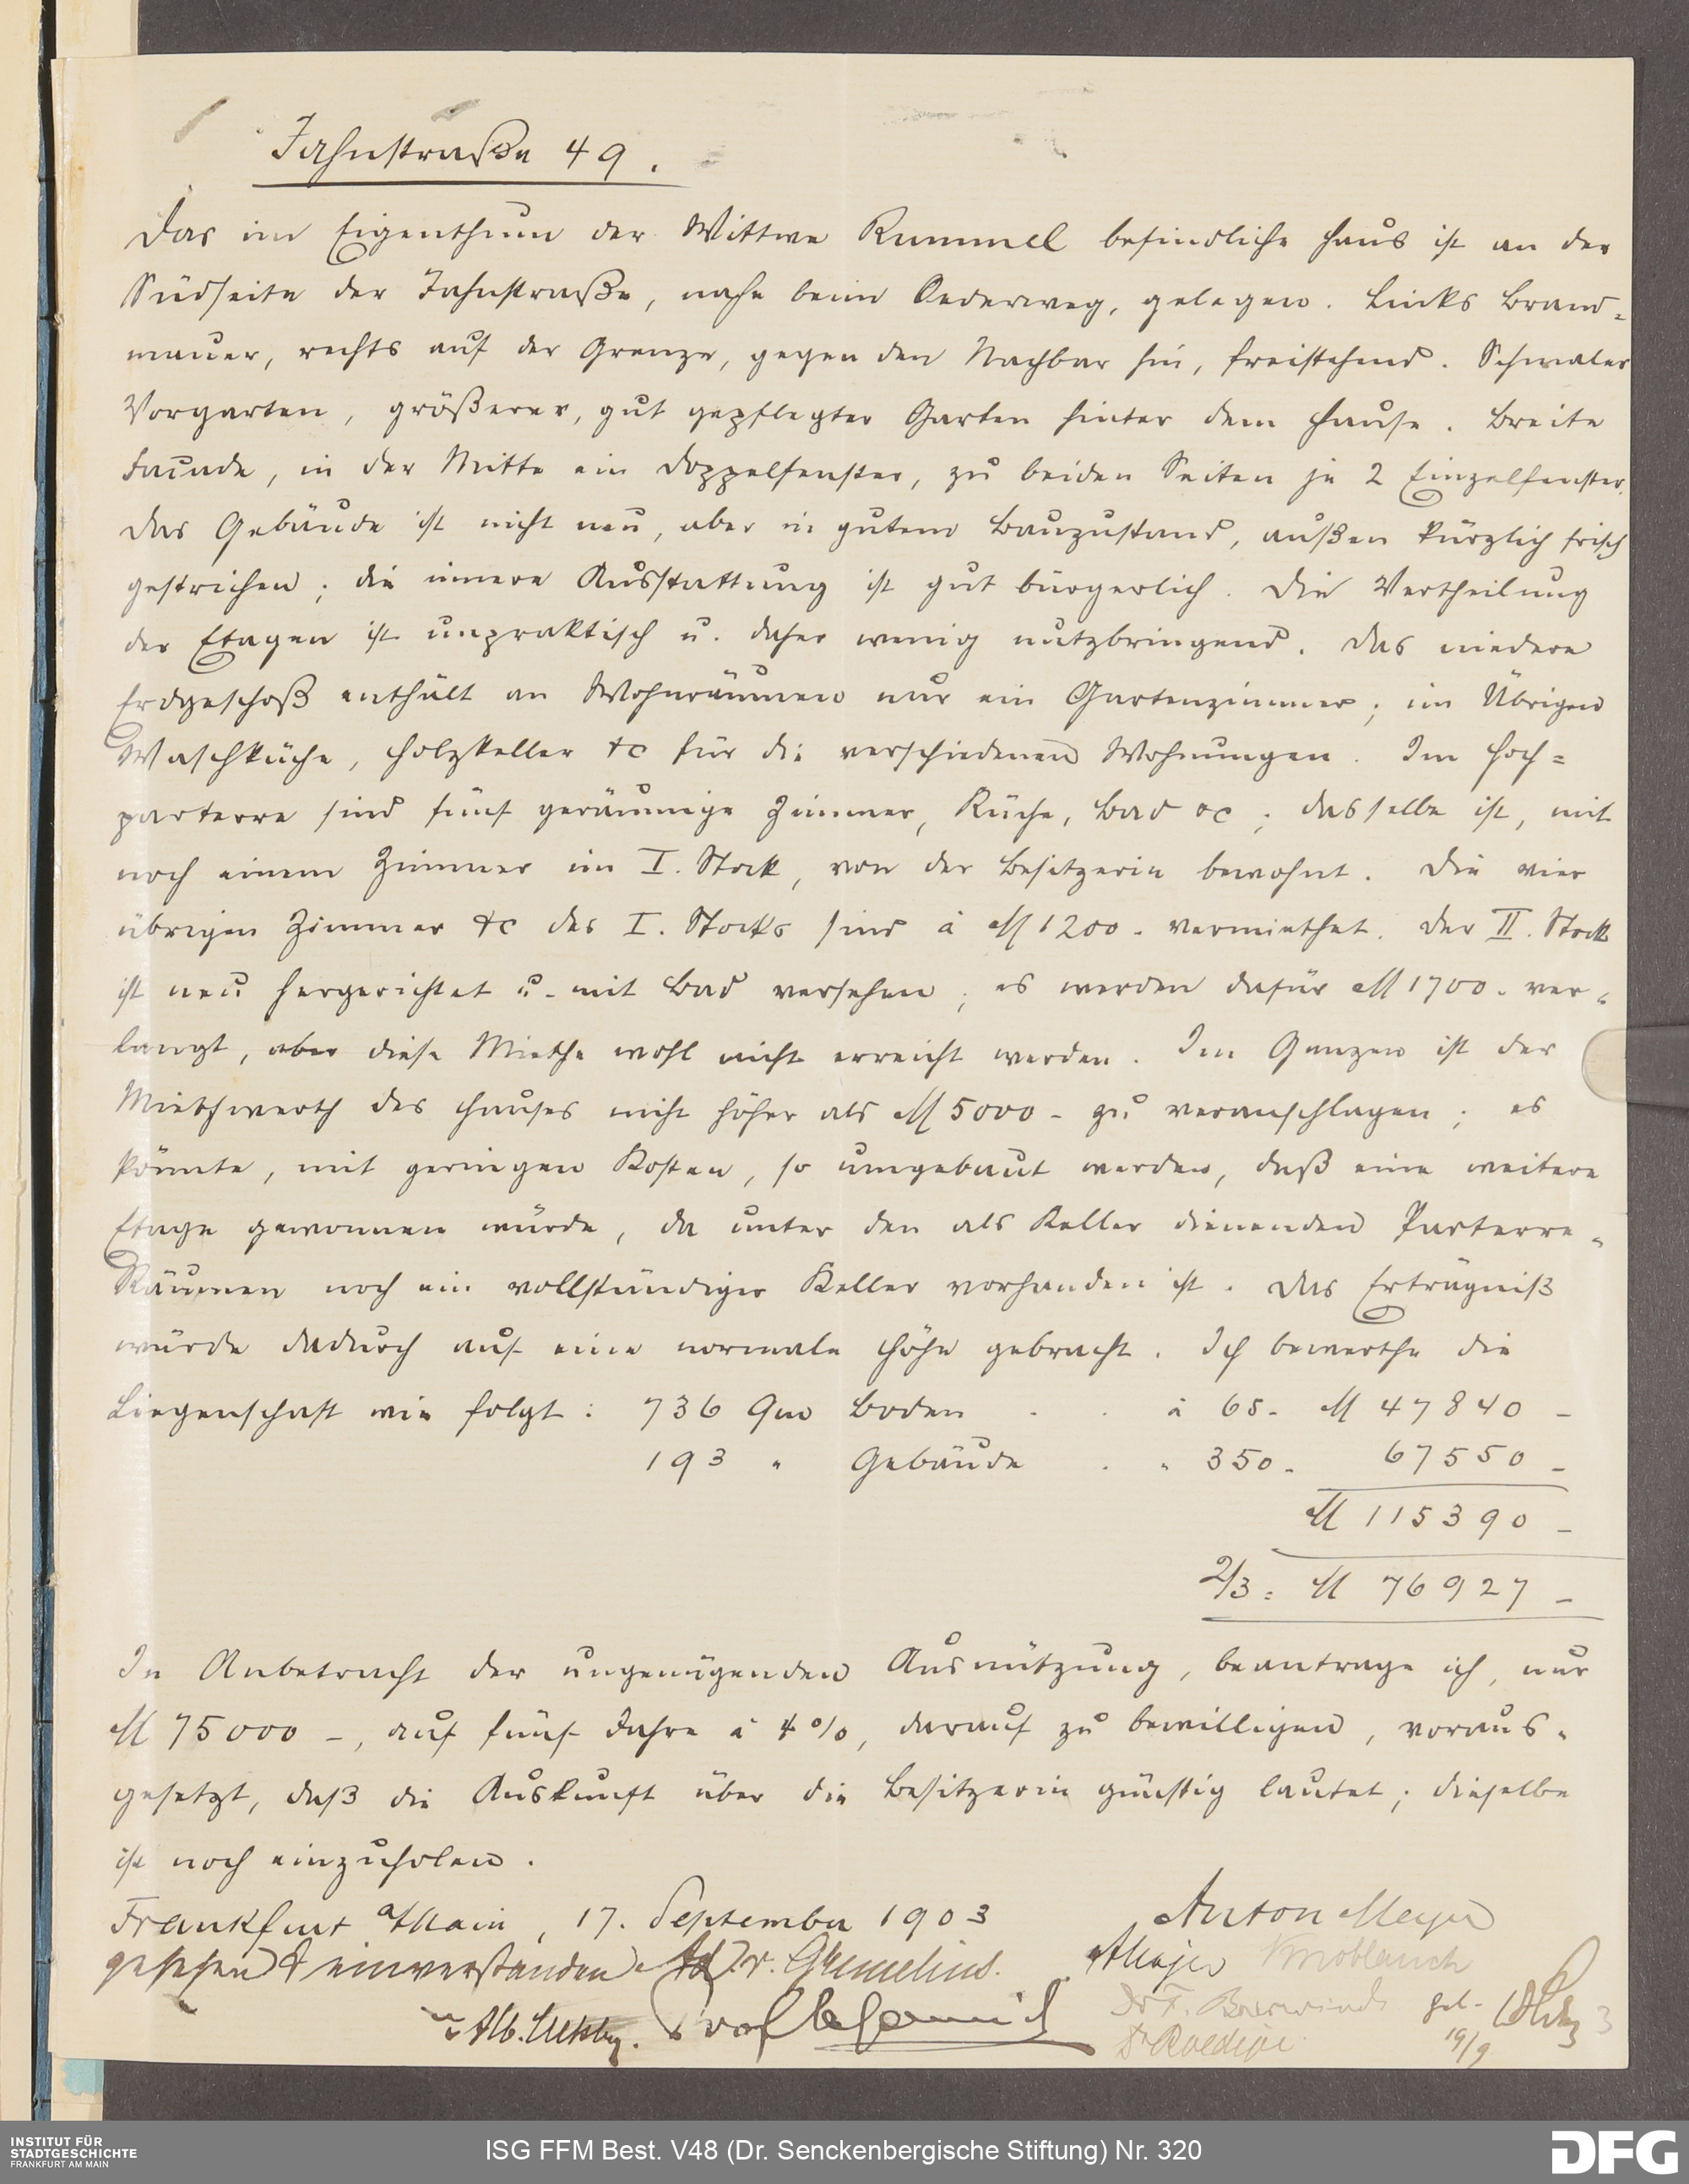 Jahnstraße 49.
Das im Eigenthum der Wittwe Rummel befindliche Haus ist an der
Südseite der Jahnstraße, nahe beim Oederweg, gelegen. Links Brand-
mauer, rechts auf der Grenze, gegen den Nachbar hin, freistehend. Schmaler
Vorgarten, größerer, gut gepflegter Garten hinter dem Hause. Breite
Facade, in der Mitte ein Doppelfenster, zu beiden Seiten je 2 Einzelfenster.
Das Gebäude ist nicht neu, aber in gutem Bauzustand, außen kürzlich frisch
gestrichen; die innere Ausstattung ist gut bürgerlich. Die Vertheilung
der Etagen ist unpraktisch u. daher wenig nutzbringend. Das niedere
Erdgeschoß enthält an Wohnräumen nur ein Gartenzimmer; im Übrigen
Waschküche, Holzkeller &c für die verschiedenen Wohnungen. Im Hoch=
parterre sind fünf geräumige Zimmer, Küche, Bad &c; dasselbe ist, mit
noch einem Zimmer im I. Stock, von der Besitzerin bewohnt. Die vier
übrigen Zimmer &c des I. Stocks sind à M 1200.- vermiethet. Der II. Stock
ist neu hergerichtet u. mit Bad versehen; es werden dafür M 1700.- ver-
langt, aber diese Miethe wohl nicht erreicht werden. Im Ganzen ist der
Miethwerth des Hauses nicht höher als M 5000 - zu veranschlagen; es
könnte, mit geringen Kosten, so umgebaut werden, daß eine weitere
Etage gewonnen würde, da unter den als Keller dienenden Parterre-
Räumen noch ein vollständiger Keller vorhanden ist. Das Erträgniß
würde dadurch auf eine normale Höhe gebracht. Ich bewerthe die
Liegenschaft wie folgt: 736 Qm Boden . . à 65.- M 47840 -
193 " Gebäude . " 350.- 67550 -
M 115390 -
2/3 = M 76927 -
In Anbetracht der ungenügenden Ausnützung, beantrage ich, nur
M 75000 -, auf fünf Jahre à 4%, darauf zu bewilligen, voraus-
gesetzt, daß die Auskunft über die Besitzerin günstig lautet; dieselbe
ist noch einzuholen.
Frankfurt a/Main, 17. September 1903 Anton Meyer
gesehen & einverstanden Knoblauch
Dr Roediger 19/9
INSTITUT FÜR
STADTGESCHICHTE
FRANKFURT AM MAIN
ISG FFM Best. V48 (Dr. Senckenbergische Stiftung) Nr. 320
DFG